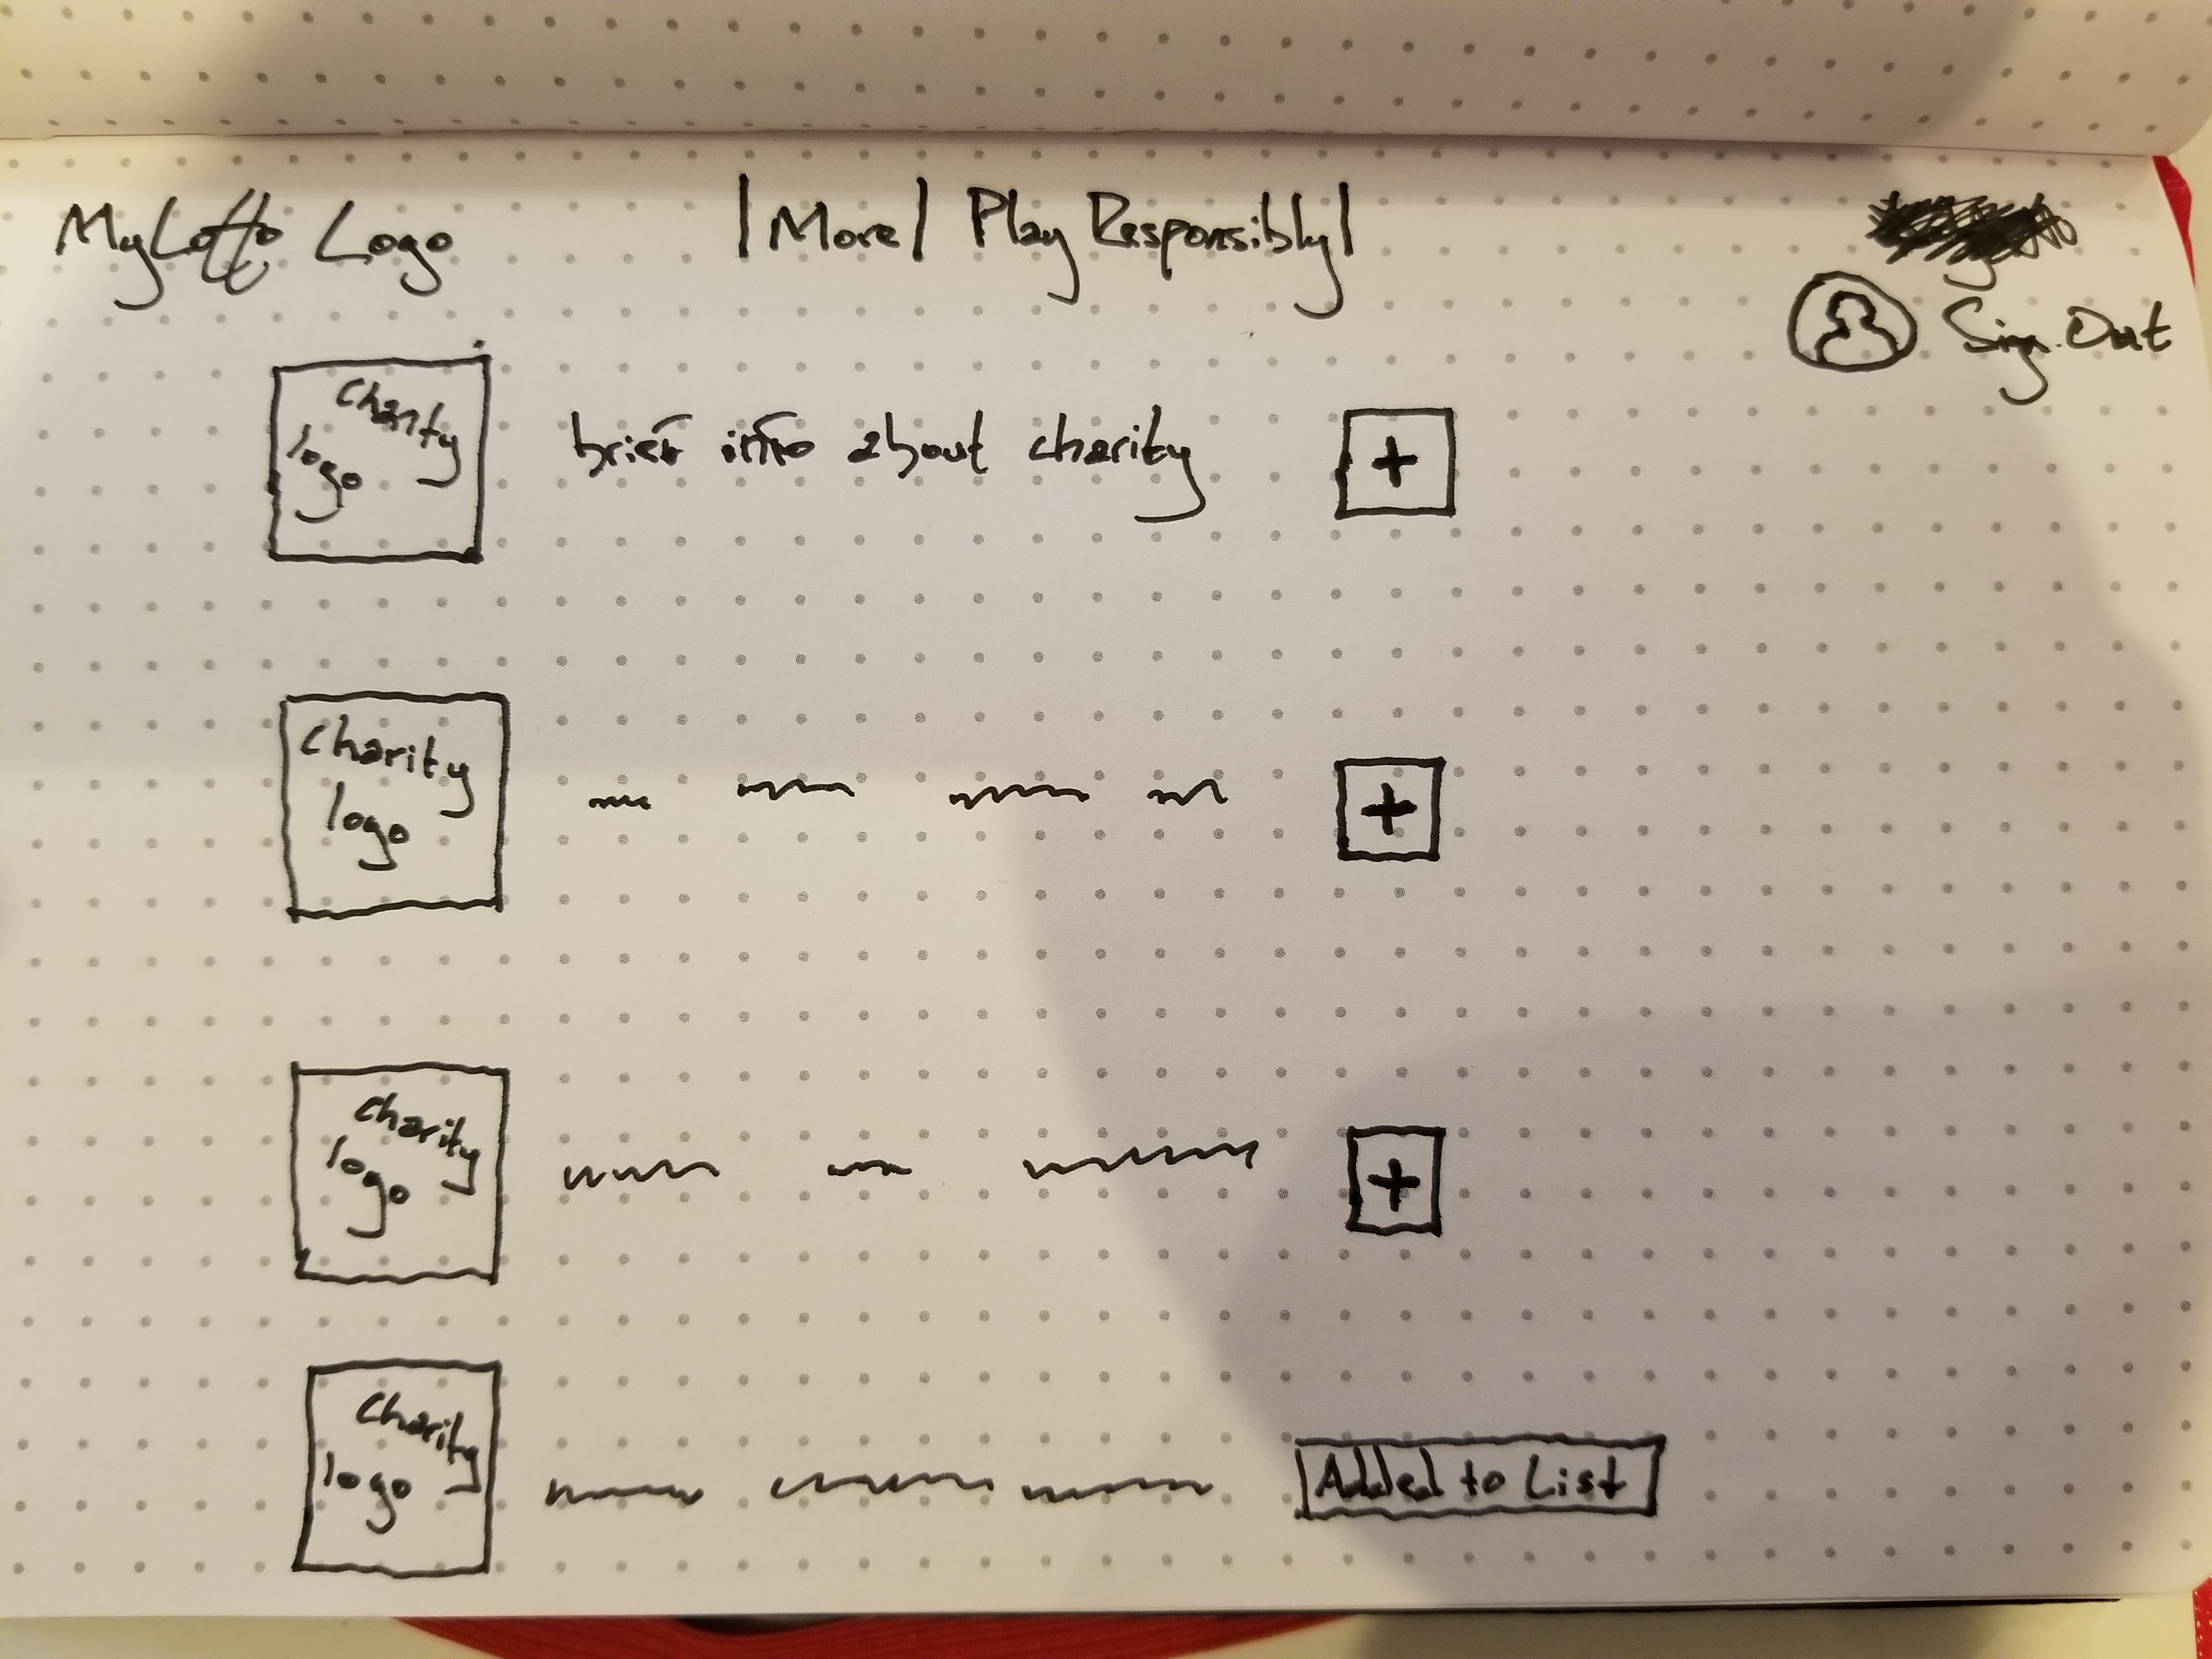 MyLotto Logo | More | Play Responsibly |
Sign Out
charity
logo
brief info about charity +
charity
logo
+
charity
logo
+
charity
logo
Added to List